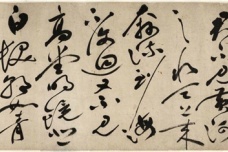 君不見黃河
之水天上來
奔流到海
不復迴又不見
高堂明鏡悲
白髮朝如青